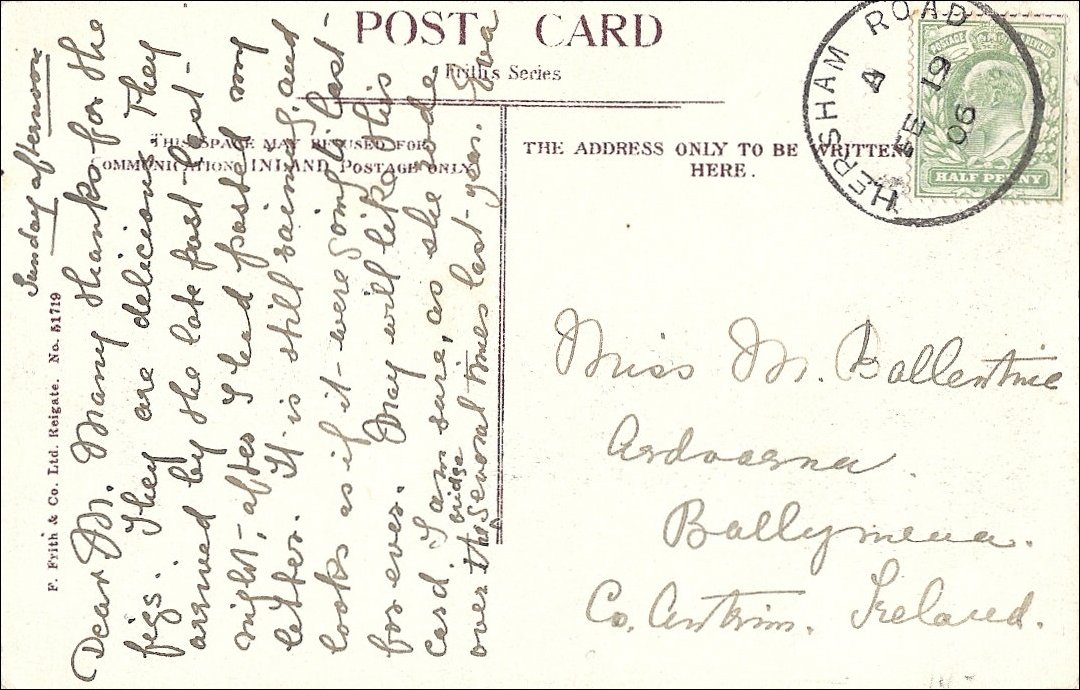 POST CARD
Frith's Series
THIS SPACE MAY BE USED FOR
COMMUNICATION INLAND POSTAGE ONLY
THE ADDRESS ONLY TO BE WRITTEN
HERE.
HERSHAM ROAD
A
FE 19
06
POSTAGE REVENUE
HALF PENNY
Sunday afternoon
Dear M. Many thanks for the
figs. They are delicious. They
arrived by the late post last
night, after I had posted my
letter. It is still raining, and
looks as if it were going to last
for ever. May will like this
card, I am sure, as she rode
over this bridge several times last year. Eva
F. Frith & Co. Ltd. Reigate. No. 51719
Miss M. Ballentine
Ardvarna.
Ballymena.
Co. Antrim. Ireland.